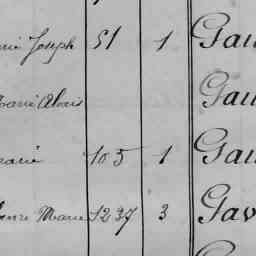 Joseph 51 1 Gau
Marie Alois Gau
Marie 105 1 Gau
Marie 1237 3 Gav